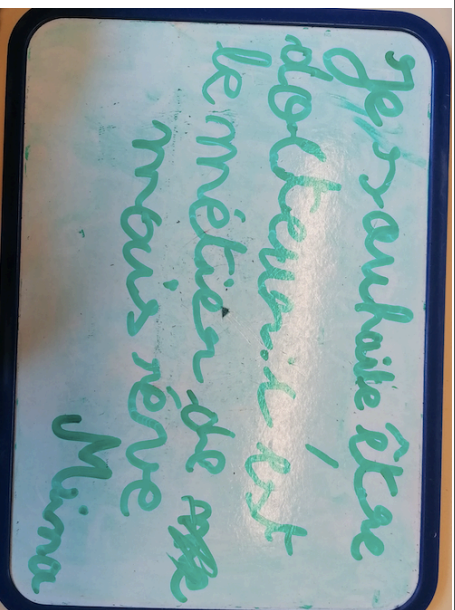 Je souhaite être
docteur. c'est
le métier de
mais rêve
Mima